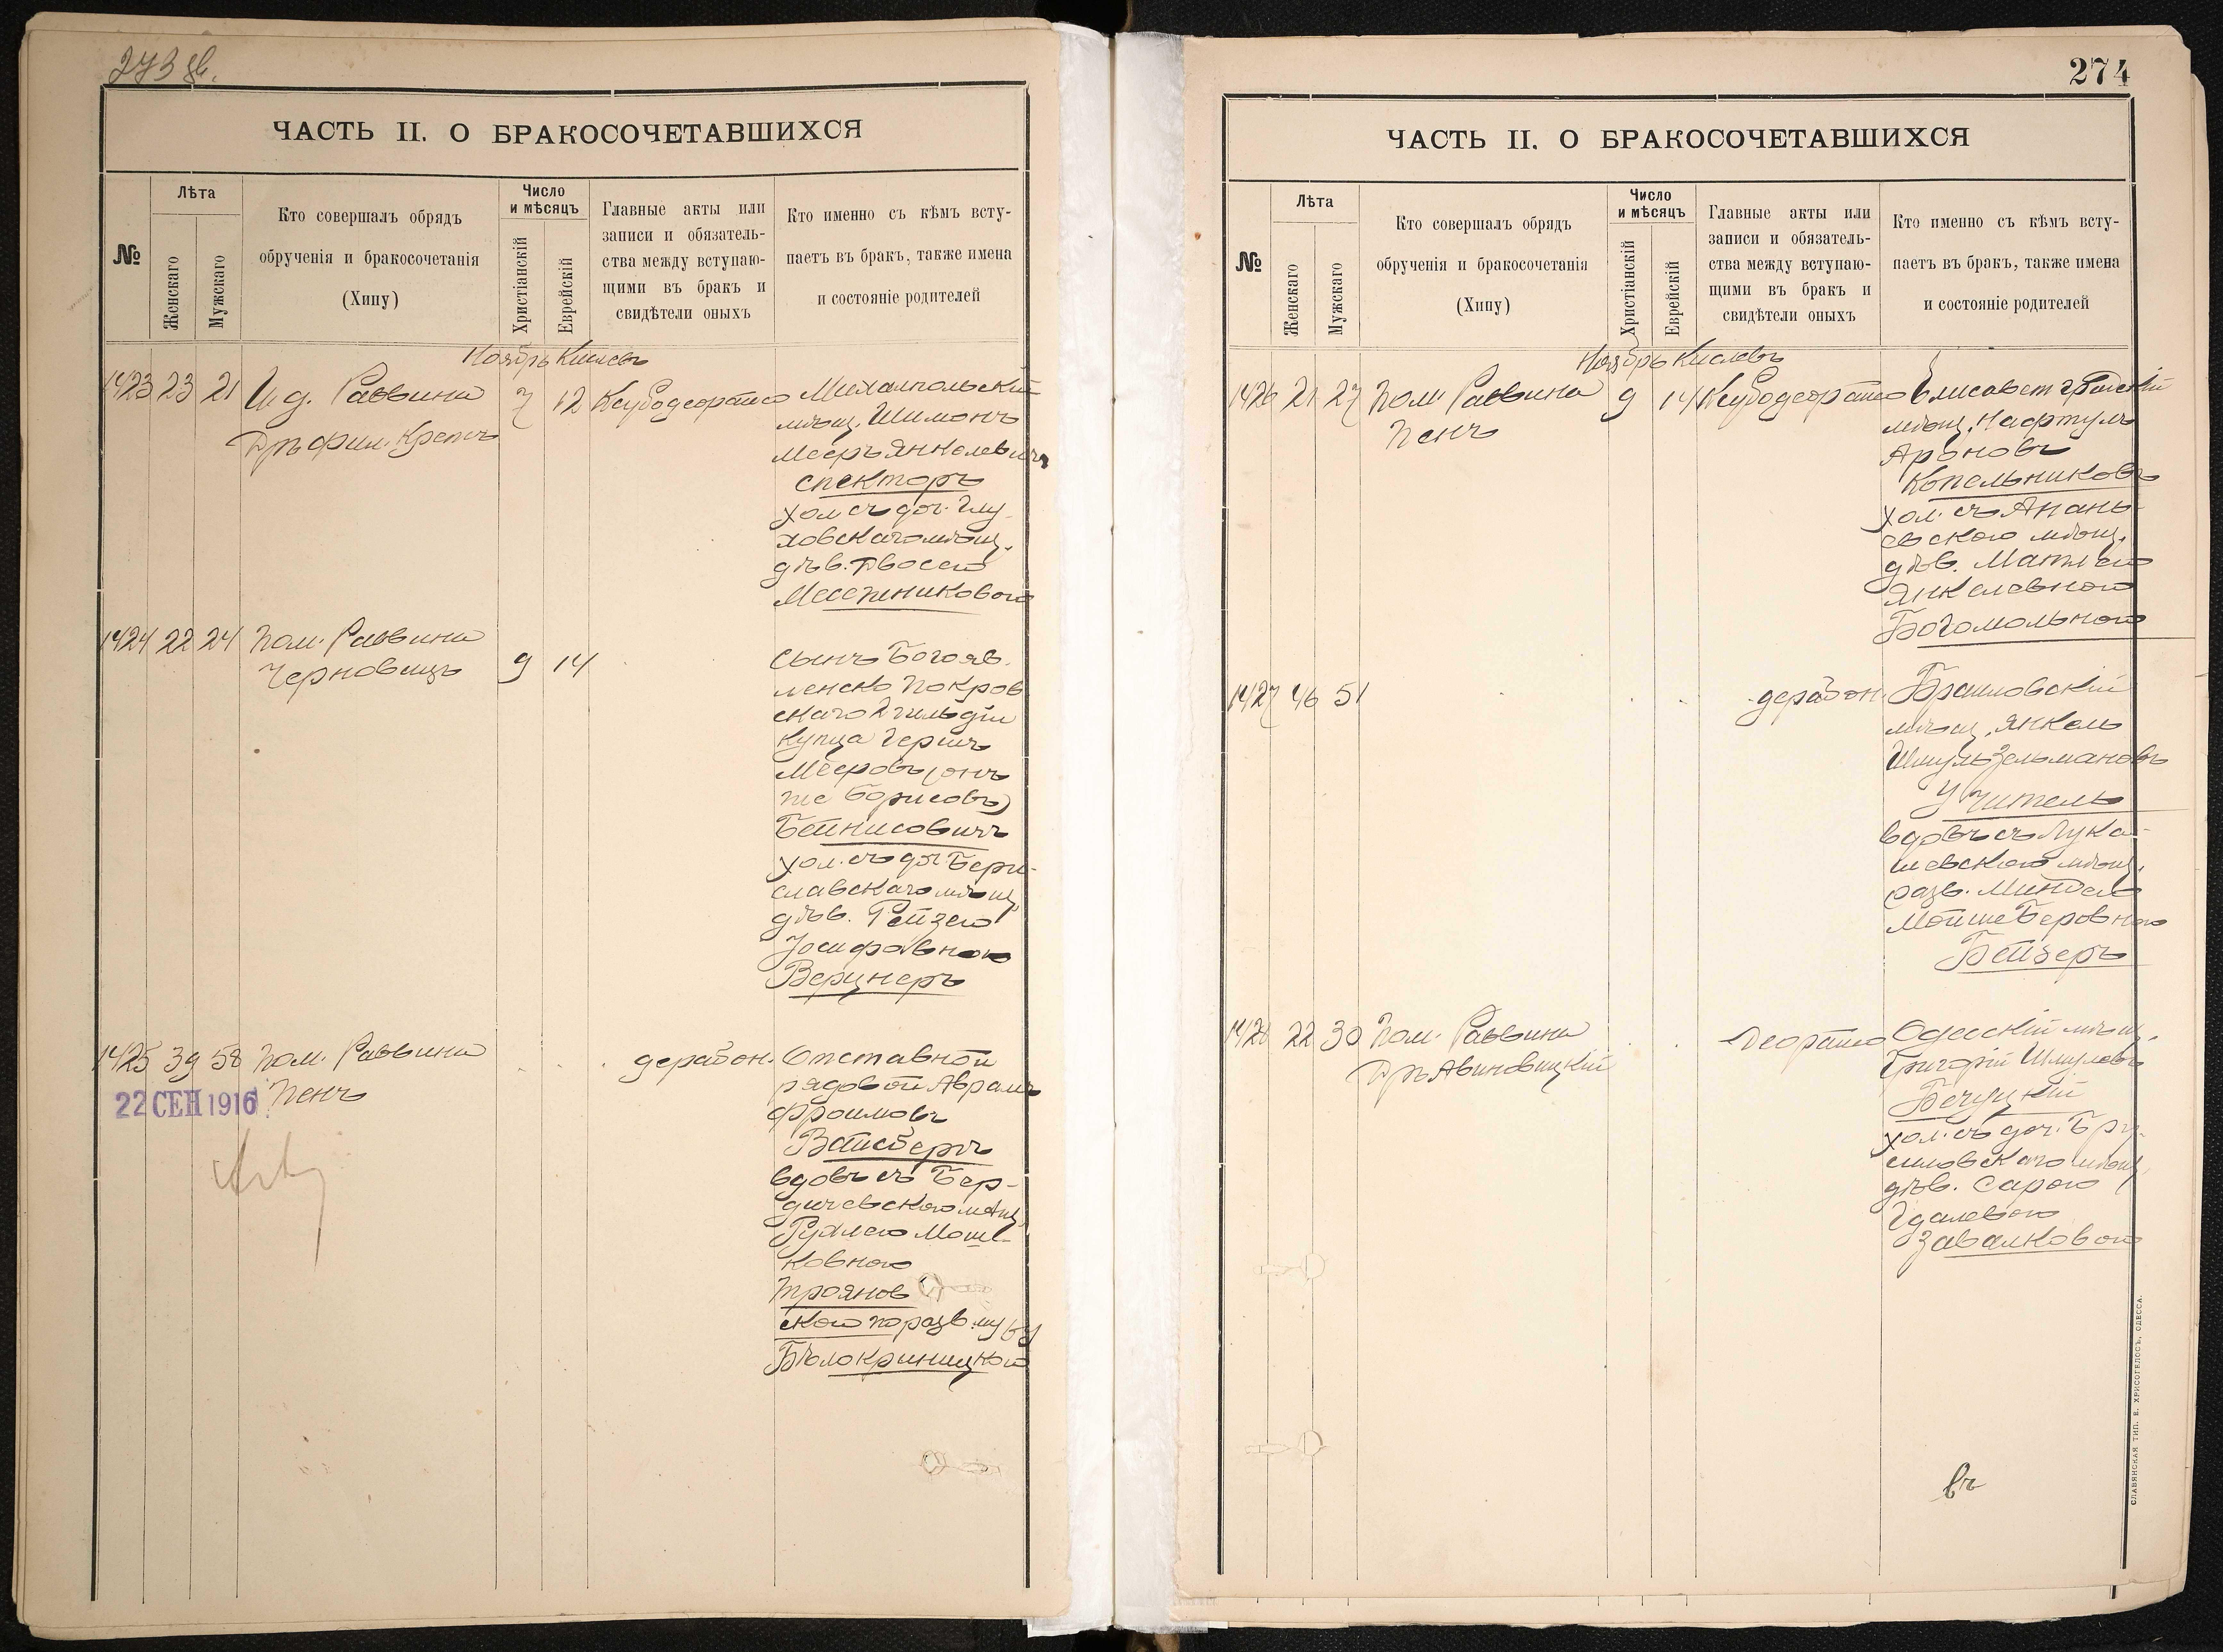 ЧАСТЬ II. О БРАКОСОЧЕТАВШИХСЯ
№
Лѣта
Женскаго
Мужскаго
Кто совершалъ обрядъ
обрученія и бракосочетанія
(Хипу)
Число
и мѣсяцъ
Христіанскій
Еврейскій
Главные акты или
записи и обязатель-
ства между вступаю-
щими въ бракъ и
свидѣтели оныхъ
Кто именно съ кѣмъ всту-
паетъ въ бракъ, также имена
и состояніе родителей
Ноябрь Кислевъ
1423 23 21
И.д. Раввина
Дръ фил. Крепсъ
7 12
Ксубодеорайсо
Михалпольскій
мѣщ. Шимонъ
Мееръ Янкелевичъ
Спекторъ
хол. съ доч. Глу
ховскаго мѣщ.
дѣв. Двосею
1424 22 24
Пом. Раввина
Черновицъ
9 14
Сынъ Богояв
ленско Покров
скаго 2 гильдіи
купца Гершъ
Мееровъ (онъ
же Борисовъ)
Бейнисовичъ
хол. съ доч Бери-
славскаго мѣщ.
дѣв. Рейзею
Іосифовною
Верцнеръ
1425 39 58
Пом. Раввина
Пенъ
дерабон.
Отставной
рядовой Аврамъ
Фроимовъ
Вайсбергъ
вдовъ съ Бер-
дичевскою мѣщ.
Рухлею Мош-
ковною
Троянов
скою по разв. мужу
Бѣлокриницкою
22 СЕН 1916
274
ЧАСТЬ II. О БРАКОСОЧЕТАВШИХСЯ
№
Лѣта
Женскаго
Мужскаго
Кто совершалъ обрядъ
обрученія и бракосочетанія
(Хипу)
Число
и мѣсяцъ
Христіанскій
Еврейскій
Главные акты или
записи и обязатель-
ства между вступаю-
щими въ бракъ и
свидѣтели оныхъ
Кто именно съ кѣмъ всту-
паетъ въ бракъ, также имена
и состояніе родителей
Ноябрь Кислевъ
1426 21 27
Пом. Раввина
Пенъ
9 14
Ксубодеорайсо
Елисаветградскій
мѣщ. Нафтулъ
Ароновъ
Копельниковъ
хол. съ Анань-
евскою мѣщ.
дѣв. Матлею
Янкелевною
Богомольною
1427 46 51
дерабон.
Браиловскій
мѣщ. Янкель
Шмуль Зельмановъ
Учитель
вдовъ съ Лука-
шевскою мѣщ.
разв. Миндею
Мойше Беровною
Бейзеръ
1428 22 30
Пом. Раввина
Дръ Авиновицкій
Деорайсо
Одесскій мѣщ.
Григорій Шмулевъ
хол. съ доч. Бру-
силовскаго мѣщ.
дѣв. Сарою
Гдалевою
Завалковою
СЛАВЯНСКАЯ ТИП. Е. ХРИСОГЕЛОСЪ, ОДЕССА.